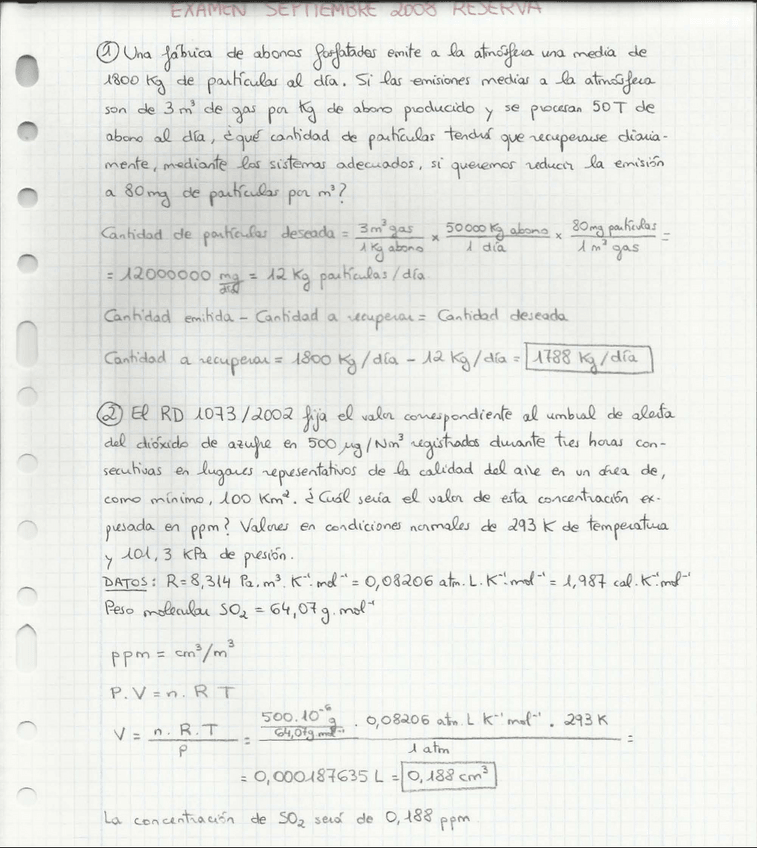 EXAMEN SEPTIEMBRE 2008 RESERVA
① Una fábrica de abonos fosfatados emite a la atmósfera una media de
1800 Kg de partículas al día. Si las emisiones medias a la atmósfera
son de 3 m³ de gas por Kg de abono producido y se procesan 50T de
abono al día, ¿qué cantidad de partículas tendrá que recuperarse diaria-
mente, mediante los sistemas adecuados, si queremos reducir la emisión
a 80 mg de partículas por m³?
Cantidad de partículas deseada = 3 m³ gas / 1 Kg abono × 50000 Kg abono / 1 día × 80 mg partículas / 1 m³ gas =
= 12000000 mg/día = 12 Kg partículas/día
Cantidad emitida - Cantidad a recuperar = Cantidad deseada
Cantidad a recuperar = 1800 Kg/día - 12 Kg/día = 1788 Kg/día
② El RD 1073/2002 fija el valor correspondiente al umbral de alerta
del dióxido de azufre en 500 µg/Nm³ registrados durante tres horas con-
secutivas en lugares representativos de la calidad del aire en un área de,
como mínimo, 100 Km². ¿Cuál sería el valor de esta concentración ex-
presada en ppm? Valores en condiciones normales de 293 K de temperatura
y 101,3 KPa de presión.
DATOS: R = 8,314 Pa.m³.K⁻¹.mol⁻¹ = 0,08206 atm.L.K⁻¹.mol⁻¹ = 1,987 cal.K⁻¹.mol⁻¹
Peso molecular SO₂ = 64,07 g.mol⁻¹
ppm = cm³/m³
P.V = n.R T
V = n.R.T / P = 500.10⁻⁶ g / 64,07 g.mol⁻¹ . 0,08206 atm.L K⁻¹ mol⁻¹ . 293 K / 1 atm =
= 0,000187635 L = 0,188 cm³
La concentración de SO₂ será de 0,188 ppm